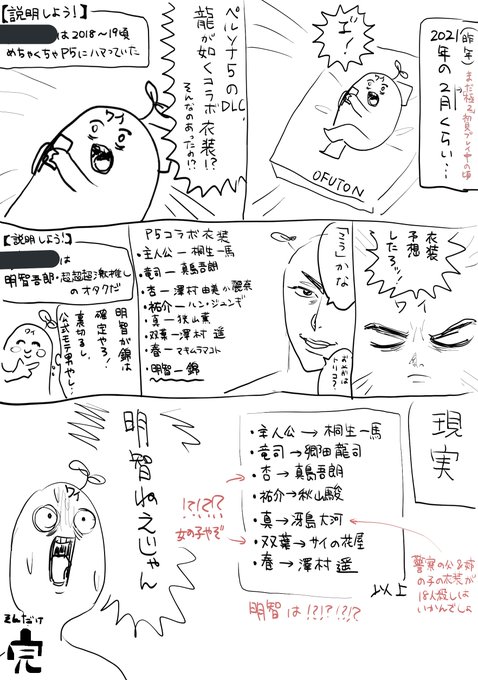 (昨年)
2021
年の2月くらい…
まだ極2初見プレイ中の頃
OFUTON
ペルソナ5のDLC、
龍が如くコラボ衣装!?
そんなのあったか!?
ワイ
【説明しよう!】
は2018〜19頃
めちゃくちゃP5にハマっていた
衣装
予想
したろッ!
ワイ
「こう」かな
P5コラボ衣装
・主人公ー桐生一馬
・竜司ー真島吾朗
・杏ー澤村由美か麗奈
・祐介ーハン・ジュンギ
・真ー狄山薫
・双葉ー澤村 遥
・春ーマキムラマコト
・明智ー錦
【説明しよう!】
は
明智吾郎・超超超激推し
のオタクだ
明智が錦は
確定やろ!
裏切るし、
公式モテ男やし…
ワイ
現実
・主人公→桐生一馬
・竜司→郷田龍司
・杏→真島吾朗
・祐介→秋山駿
・真→冴島大河
・双葉→サイの花屋
・春→澤村 遥
以上
!?!?!?
女の子やぞ
警察の公務
の子の衣装が
18人殺しは
いかんでしょ
明智は!?!?!?!?
明智ねえじゃん
ワイ
そんだけ
完